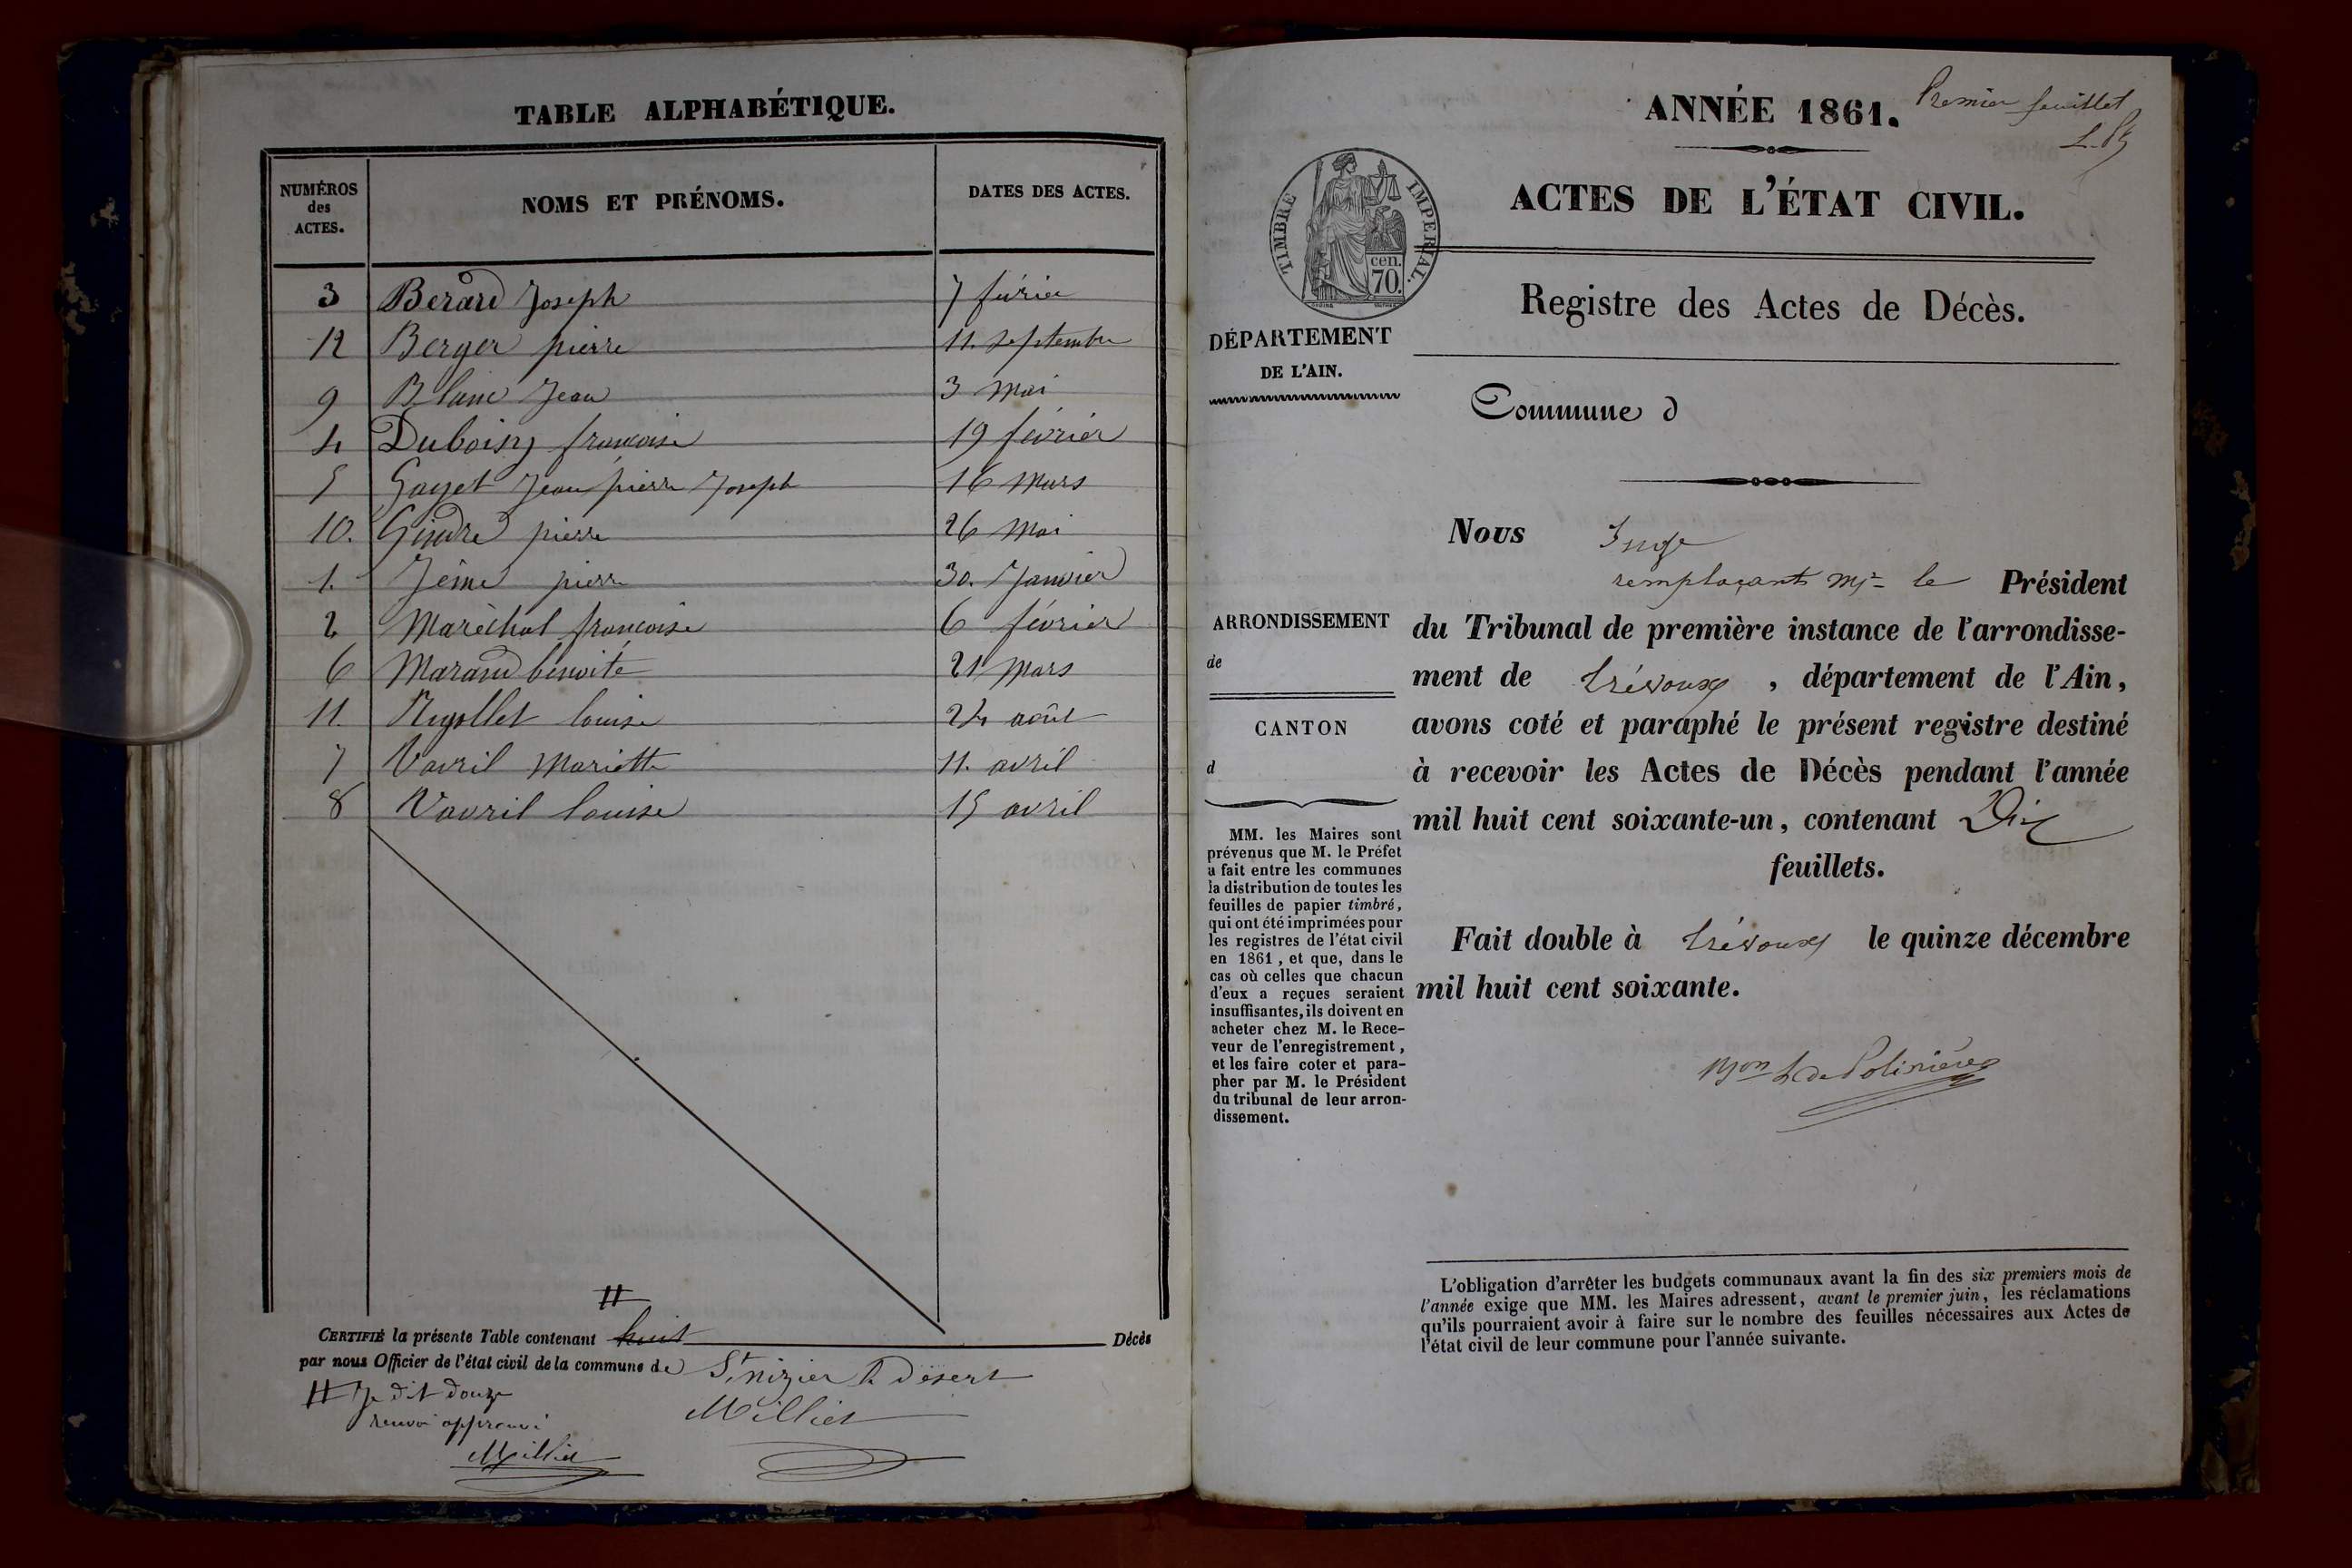 TABLE ALPHABÉTIQUE.
NUMÉROS des ACTES. NOMS ET PRÉNOMS. DATES DES ACTES.
3 Berard Joseph 7 février
12 Berger pierre 11. septembre
9 Blanc Jean 3 mai
4 Duboisy francoise 19 février
5 Gayet Jean pierre Joseph 16 mars
10. Gindre pierre 26 mai
1. Jême pierre 30. Janvier
2 Maréchal francoise 6 février
6 Marand benoite 21 mars
11. louise 24 août
7 Vavril Mariette 11. avril
8 Vavril louise 15 avril
#
CERTIFIÉ la présente Table contenant huit Décès
par nous Officier de l'état civil de la commune de St nizier le Désert
# Je dit douze
renvoi approuvé
Milliet
Milliet
Premier feuillet
ANNÉE 1861.
ACTES DE L'ÉTAT CIVIL.
TIMBRE IMPERIAL.
cen.
70.
Registre des Actes de Décès.
DÉPARTEMENT
DE L'AIN.
Commune d
ARRONDISSEMENT
de
CANTON
d
MM. les Maires sont
prévenus que M. le Préfet
a fait entre les communes
la distribution de toutes les
feuilles de papier timbré,
qui ont été imprimées pour
les registres de l'état civil
en 1861, et que, dans le
cas où celles que chacun
d'eux a reçues seraient
insuffisantes, ils doivent en
acheter chez M. le Rece-
veur de l'enregistrement,
et les faire coter et para-
pher par M. le Président
du tribunal de leur arron-
dissement.
Nous Juge
remplaçant Mr le Président
du Tribunal de première instance de l'arrondisse-
ment de trévoux, département de l'Ain,
avons coté et paraphé le présent registre destiné
à recevoir les Actes de Décès pendant l'année
mil huit cent soixante-un, contenant Dix
feuillets.
Fait double à trévoux le quinze décembre
mil huit cent soixante.
L'obligation d'arrêter les budgets communaux avant la fin des six premiers mois de
l'année exige que MM. les Maires adressent, avant le premier juin, les réclamations
qu'ils pourraient avoir à faire sur le nombre des feuilles nécessaires aux Actes de
l'état civil de leur commune pour l'année suivante.